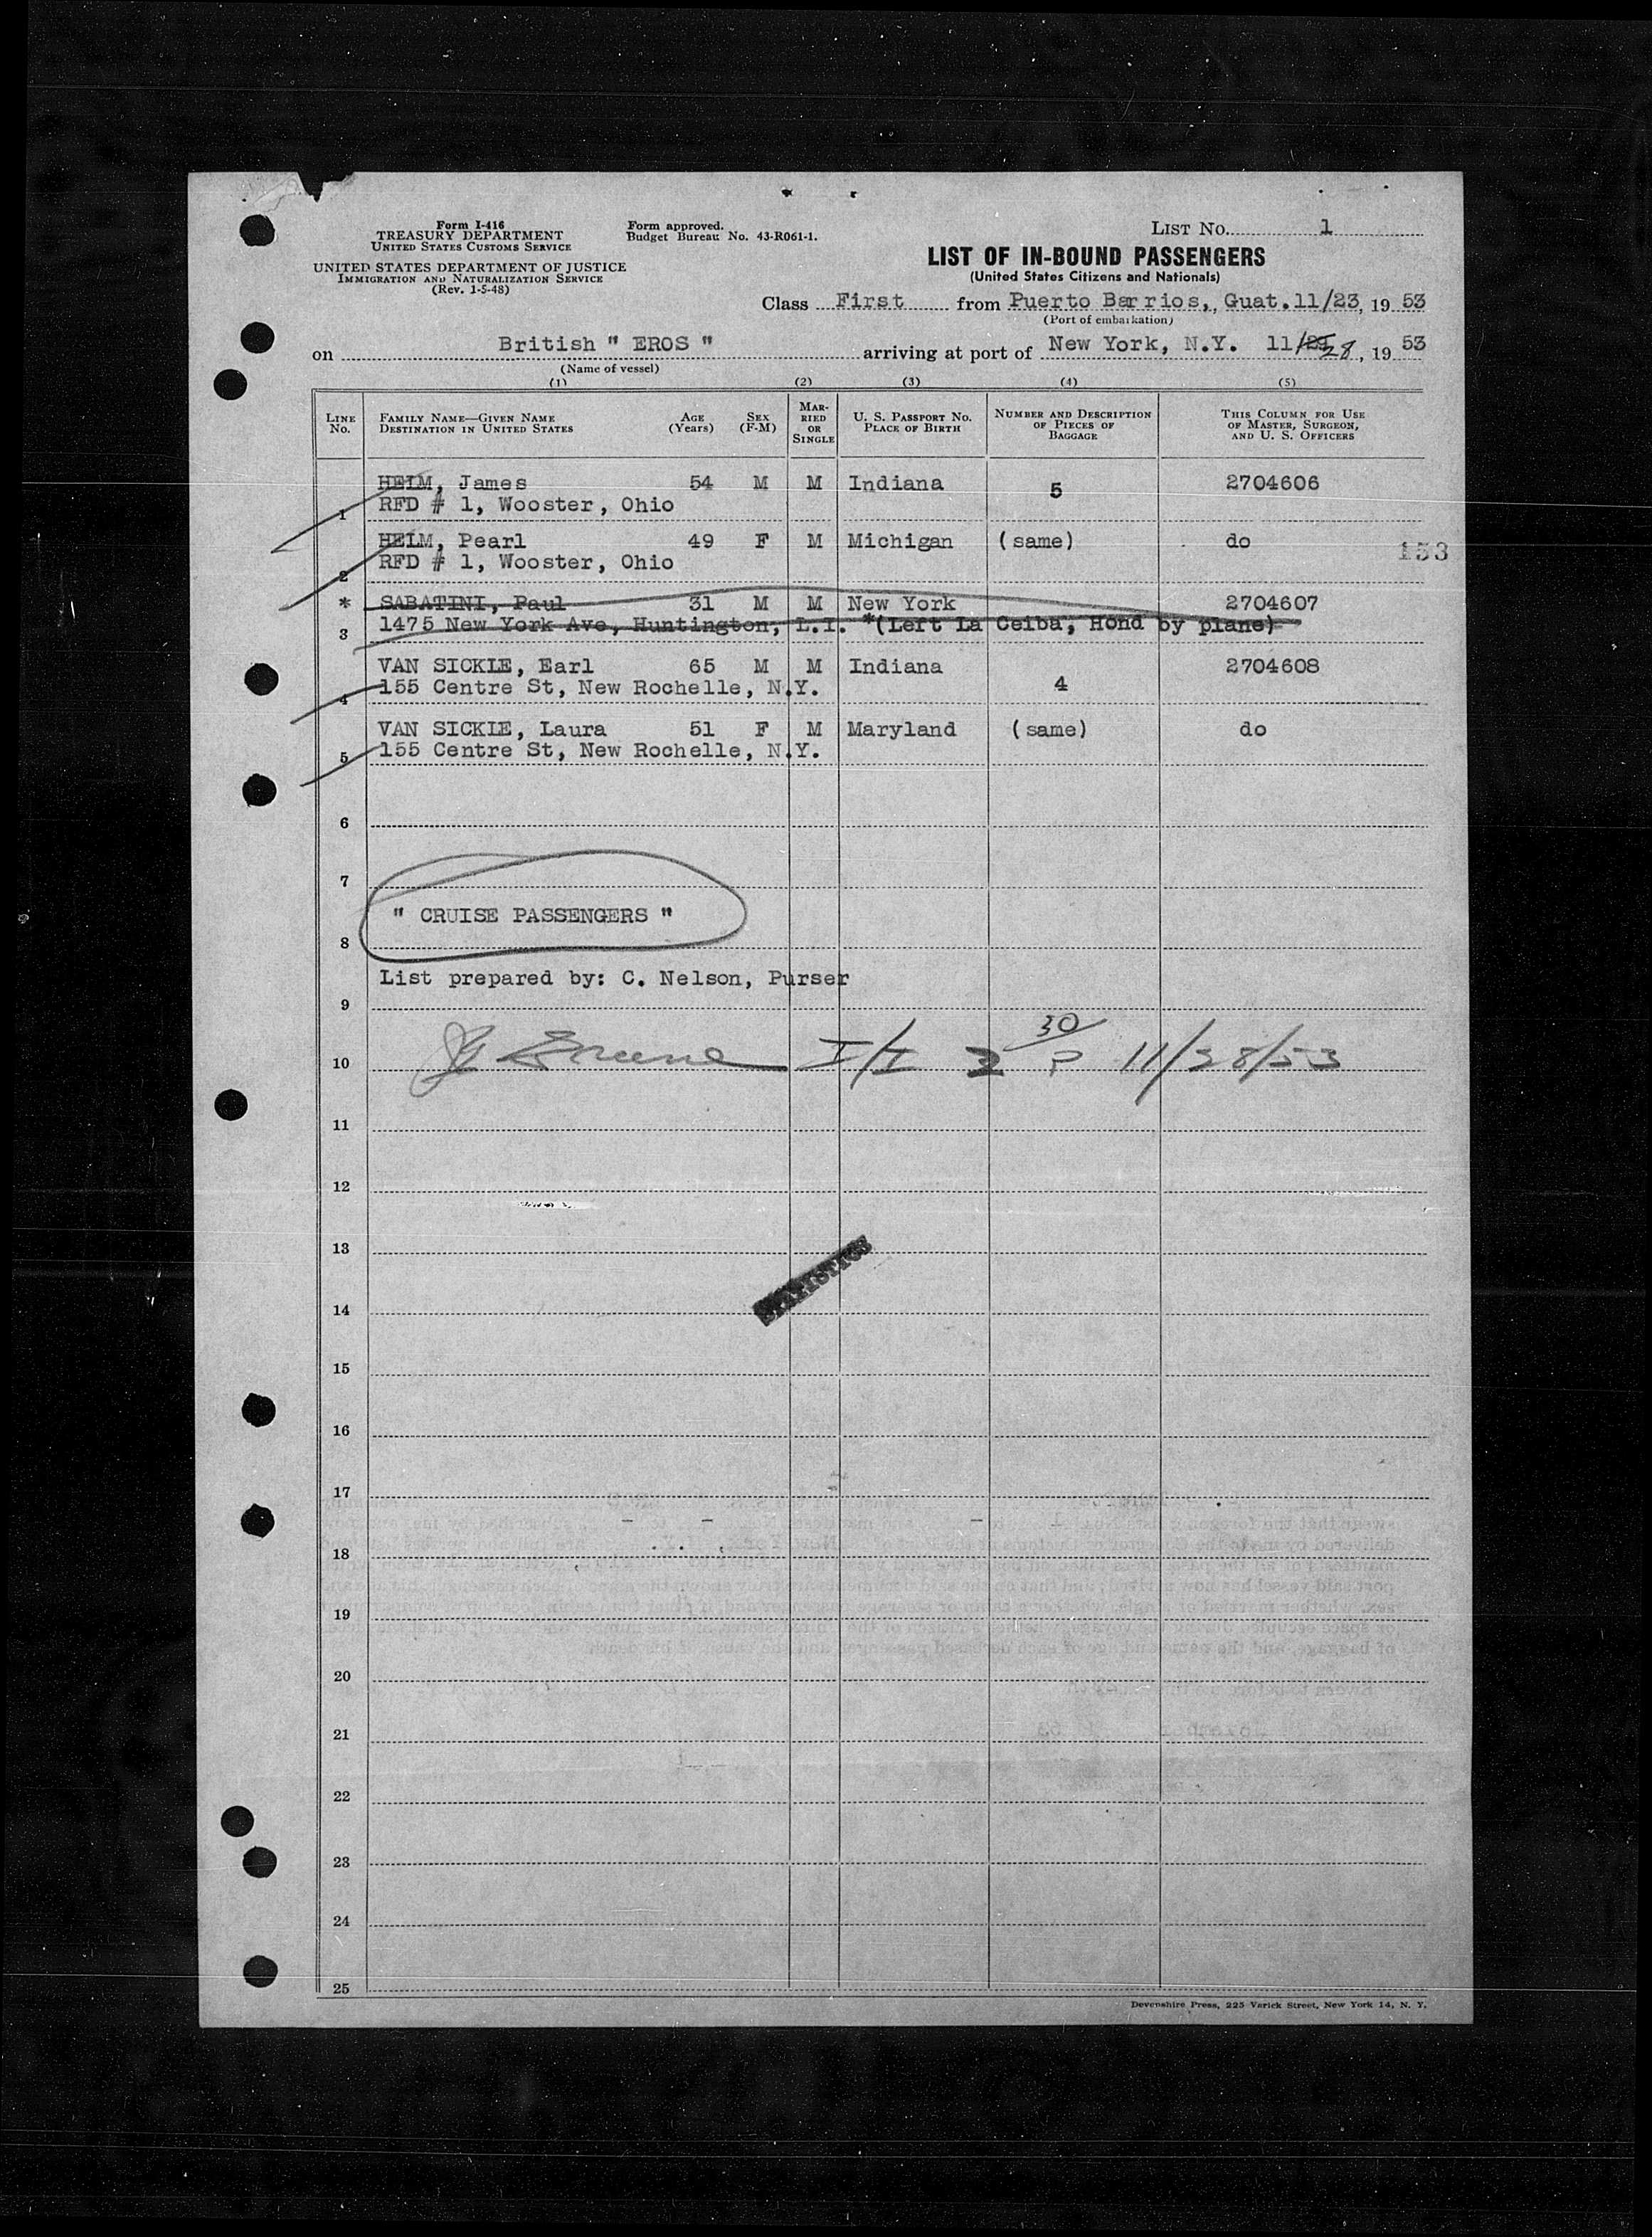 Form I-416
TREASURY DEPARTMENT
UNITED STATES CUSTOMS SERVICE
UNITED STATES DEPARTMENT OF JUSTICE
IMMIGRATION AND NATURALIZATION SERVICE
(Rev. 1-5-48)
Form approved.
Budget Bureau No. 43-R061-1.
LIST No. 1
LIST OF IN-BOUND PASSENGERS
(United States Citizens and Nationals)
Class First from Puerto Barrios, Guat. 11/23, 19 53
(Port of embarkation)
on British " EROS " arriving at port of New York, N.Y. 11/28, 19 53
(Name of vessel)
(1) (2) (3) (4) (5)
LINE No. FAMILY NAME—GIVEN NAME DESTINATION IN UNITED STATES AGE (Years) SEX (F-M) MARRIED OR SINGLE U. S. PASSPORT NO. PLACE OF BIRTH NUMBER AND DESCRIPTION OF PIECES OF BAGGAGE THIS COLUMN FOR USE OF MASTER, SURGEON, AND U. S. OFFICERS
HELM, James 54 M M Indiana 5 2704606
1 RFD # 1, Wooster, Ohio
HELM, Pearl 49 F M Michigan (same) do 153
2 RFD # 1, Wooster, Ohio
* SABATINI, Paul 31 M M New York 2704607
3 1475 New York Ave, Huntington, L.I. *(Left La Ceiba, Hond by plane)
VAN SICKLE, Earl 65 M M Indiana 2704608
4 155 Centre St, New Rochelle, N.Y. 4
VAN SICKLE, Laura 51 F M Maryland (same) do
5 155 Centre St, New Rochelle, N.Y.
6
7
" CRUISE PASSENGERS "
8
List prepared by: C. Nelson, Purser
9
10 I/I 2 30 P 11/28/53
11
12
13
STATISTICS
14
15
16
17
18
19
20
21
22
23
24
25
Devenshire Press, 225 Varick Street, New York 14, N. Y.